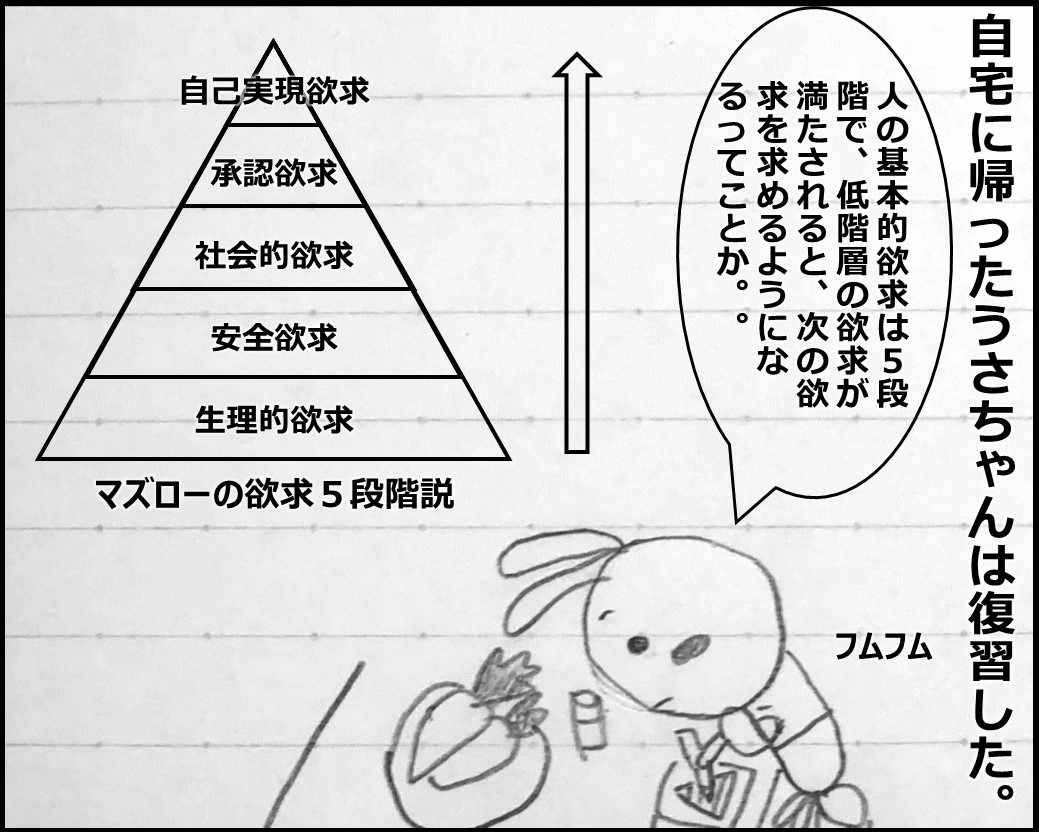 自宅に帰ったうさちゃんは復習した。
人の基本的欲求は５段
階で、低階層の欲求が
満たされると、次の欲
求を求めるようにな
るってことか。。
自己実現欲求
承認欲求
社会的欲求
安全欲求
生理的欲求
マズローの欲求５段階説
フムフム